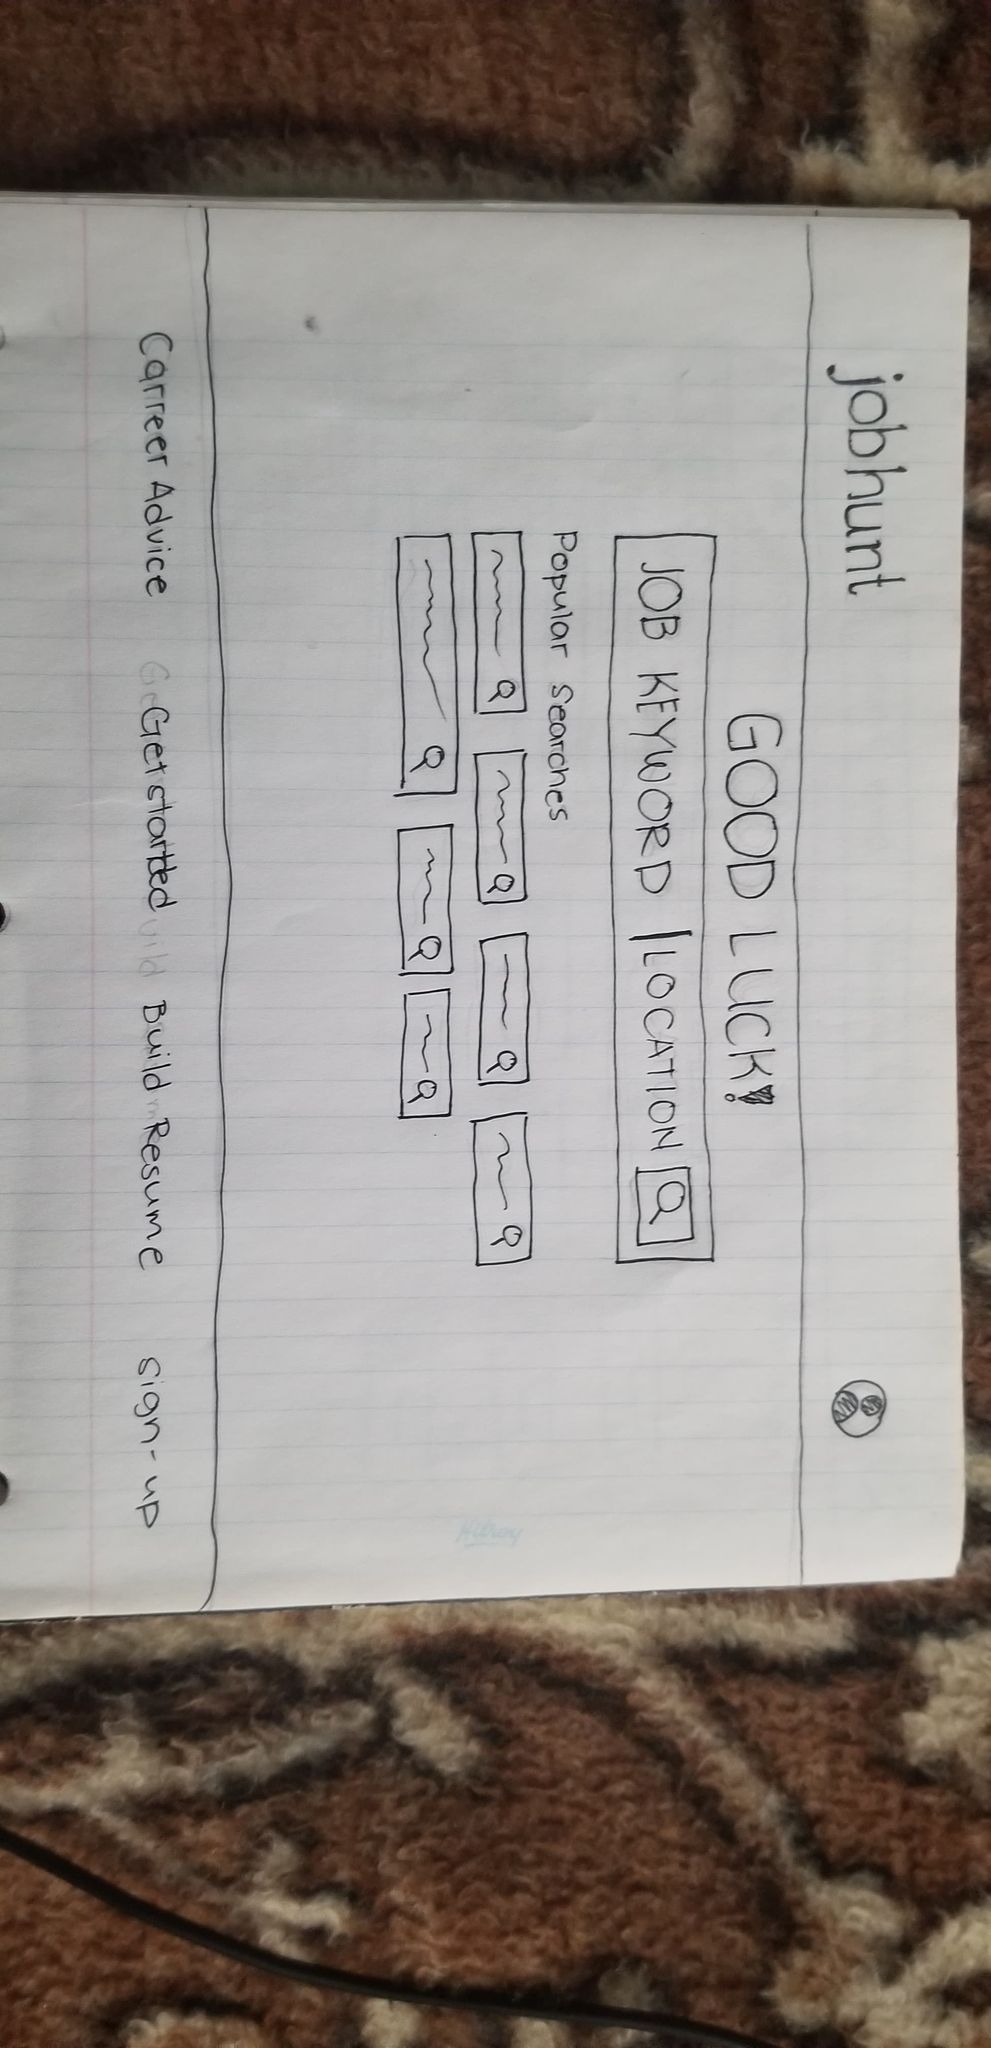 jobhunt
GOOD LUCK!
JOB KEYWORD | LOCATION
Popular Searches
Carreer Advice Get started Build Resume sign-up